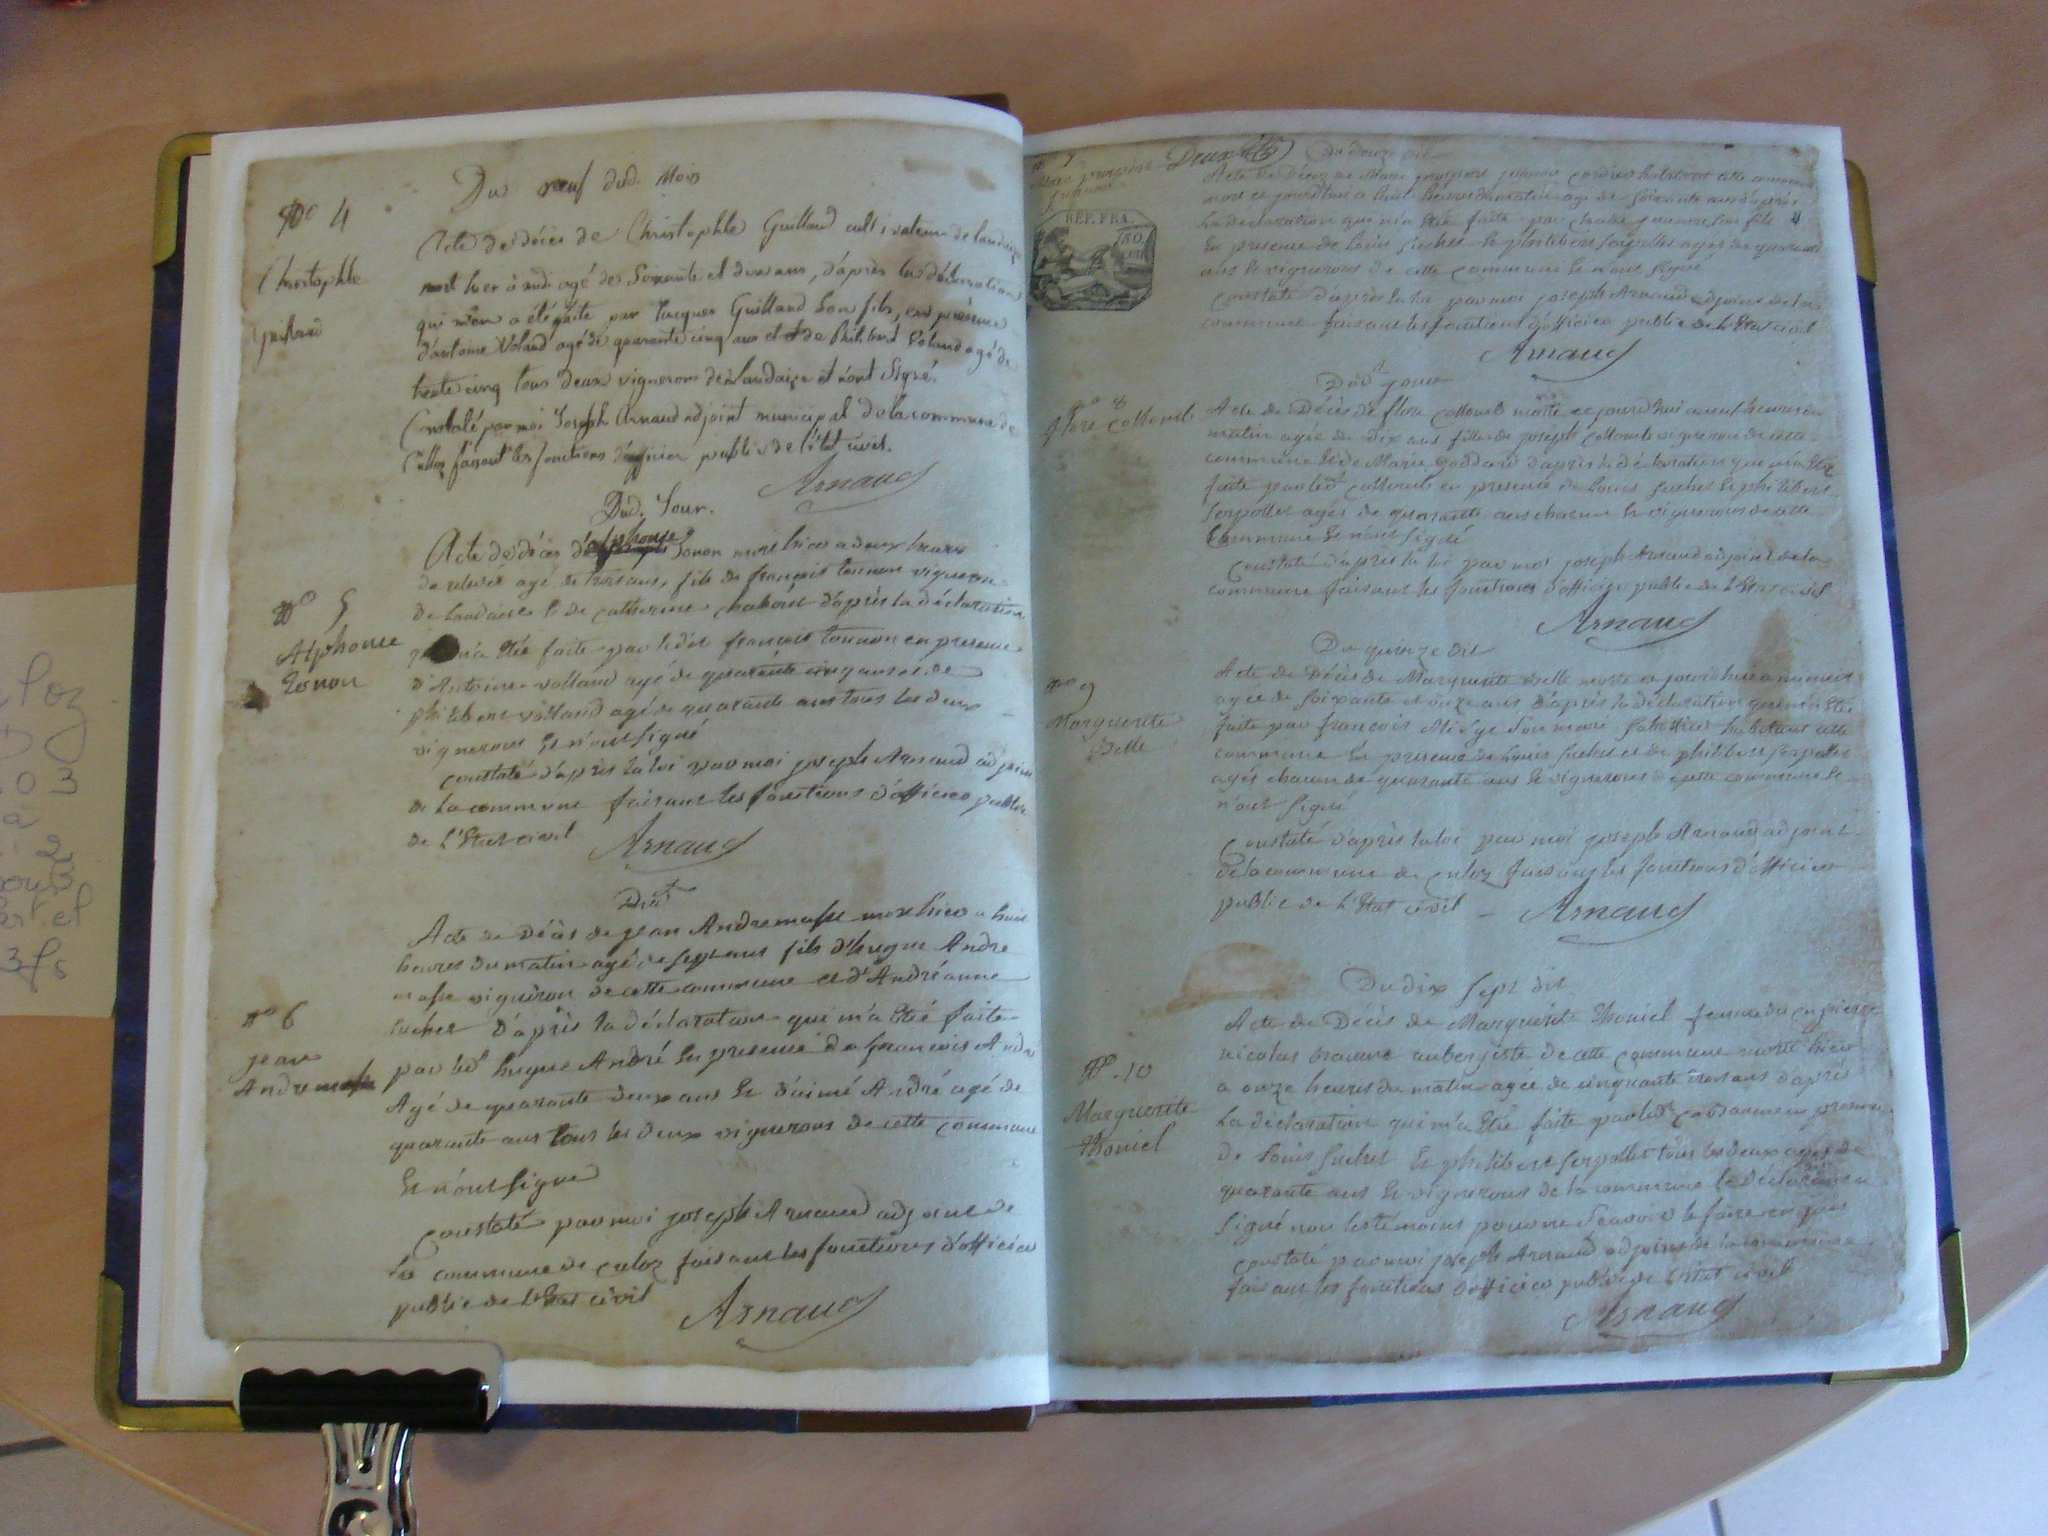 Du neuf dud. Mois
No 4
Christophle
Guillaud
Acte de décès de Christophle Guillaud cultivateur de landaize
mort hier à midi agé de soixante et deux ans, d'après la déclaration
qui m'en a été faite par Jacques Guilland son fils, en présence
d'antoine Voland agé de quarante cinq ans et de Philibert Voland agé de
trente cinq tous deux vignerons de Landaize et n'ont signé.
Constaté par moi Joseph Arnaud adjoint municipal de la commune de
Culloz faisant les fonctions d'officier public de l'état civil.
Arnaud
Dud. Jour.
No 5
Alphonse
Tonon
Acte de décès d'alphonse Tonon mort hier a deux heures
de relevée agé de trois ans, fils de françois tonnon vigneron
de landaise & de catherine chaboud d'après la déclaration
m'a été faite par ledit françois tonnon en presence
d'Antoine volland agé de quarante cinq ans et de
philibert volland agé de quarante ans tous les deux
vignerons et n'ont signé
constaté d'après la loi par moi joseph Arnaud adjoint
de la commune faisant les fonctions d'officier public
de l'Etat civil
Arnaud
Dud.t
No 6
jean
Andremasse
Acte de Décès de jean Andremasse mort hier a huit
heures du matin agé de sept ans fils d'hugue Andre
masse vigneron de cette commune et d'Andréanne
Suchet d'après la déclaration qui m'a été faite
par led.t hugue André En presence de françois André
Agé de quarante deux ans Et d'aimé André agé de
quarante ans tous les deux vignerons de cette commune
Et n'ont signé
constaté par moi joseph Arnaud adjoint de
la commune de culoz faisant les fonctions d'officier
public de l'Etat civil
Arnaud
No 7
Deux
Du douze dit
REP. FRA.
Acte de Décès de Marie habitant cette commune
mort ce jourdhui a huit heures du matin agé de soixante ans d'après
La déclaration qui m'a Eté faite par son fils
En presence de Louis Suchet Et philibert Serpollet agés de quarante
ans Et vignerons de cette commune Et n'ont signé
constaté d'après la loi par moi joseph Arnaud adjoint de la
commune faisant les fonctions d'officier public de l'Etat civil
Arnaud
Dud.t jour
No 8
flore collomb
Acte de Décès de flore collomb morte ce jourd'hui a neuf heures du
matin agée de Dix ans fille de joseph collomb vigneron de cette
commune Et de Marie goddard d'après la déclaration qui m'a Eté
faite par led.t collomb en presence de Louis Suchet Et philibert
Serpollet agés de quarante ans chacun Et vignerons de cette
Commune Et n'ont signé
constaté d'après la loi par moi joseph Arnaud adjoint de la
commune faisant les fonctions d'officier public de l'Etat civil
Arnaud
Du quinze dit
No 9
Marguerite
Belle
Acte de Décès de Marguerite Belle morte ce jourd'hui a minuit
agée de soixante et onze ans d'après la déclaration qui m'a Eté
faite par francois Miége son mari habitant cette
commune En presence de Louis Suchet et de philibert Serpollet
agés chacun de quarante ans Et vignerons de cette commune Et
n'ont signé
constaté d'après la loi par moi joseph Arnaud adjoint
de la commune de culoz faisant les fonctions d'officier
public de l'Etat civil
Arnaud
Du dix sept dit
No 10
Marguerite
Thoniel
Acte de Décès de Marguerite Thoniel femme du pierre
nicolas aubergiste de cette commune morte hier
a onze heures du matin agée de cinquante trois ans d'après
La déclaration qui m'a Eté faite par led.t en presence
de Louis Suchet Et philibert Serpollet tous les deux agés de
quarante ans Et vignerons de la commune le déclarant a
signé non les témoins pour ne sçavoir le faire
constaté par moi joseph Arnaud adjoint de la commune
faisant les fonctions d'officier public de l'Etat civil
Arnaud